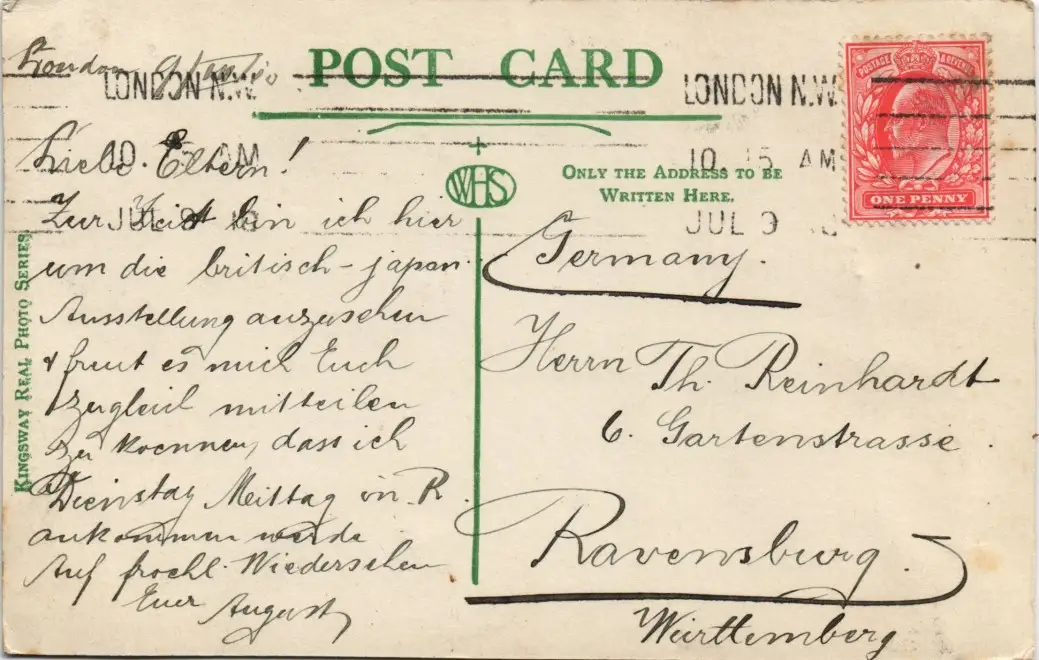 POST CARD
LONDON N.W.
LONDON N.W.
10. AM
10 15 AM
JUL 9 10
JUL 9
POSTAGE & REVENUE
ONE PENNY
WHS
ONLY THE ADDRESS TO BE
WRITTEN HERE.
KINGSWAY REAL PHOTO SERIES.
London
Liebe Eltern!
Zur Zeit bin ich hier
um die britisch-japan.
Ausstellung anzusehen
& freut es mich Euch
zugleich mitteilen
zu koennen, dass ich
Dienstag Mittag in R.
ankommen werde
Auf froehl. Wiedersehen
Euer August
Germany.
Herrn Th. Reinhardt
6. Gartenstrasse.
Ravensburg.
Württemberg